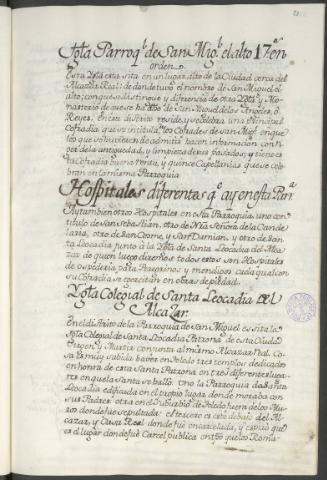 Ygla Parroql de San Migl el alto 17 en
orden.
Esta Ygla esta sita en un lugar alto de la Ciudad cerca del
Alcazar Real: de donde tuvo el nombre de San Miguel el
alto; con que se distingue y diferencia de otra Ygla y Mo-
nasterio de que se ha dho de San Miguel de los Angeles, o
Reyes. En este distrito reside y se celebra una principal
Cofradia que se intitula los Cofrades de San Migl en que
los que se huvieren de admitir hacen informacion con ri-
gor de la antiguedad, y limpieza de sus pasados; y tiene es-
ta Cofradia buena renta, y quince Capellanias que se cele-
bran en la misma Parroquia
Hospitales diferentes qe ay en esta Parra
Ay tambien otros Hospitales en esta Parroquia uno con
titulo de San Sebastian, otro de Nra Señora de la Cande
laria, otro de San Cosme, y San Damian, y otro de San-
ta Leocadia junto a la Ygla de Santa Leocadia del Alca-
zar de quien luego diremos todos estos son Hospitales
de ospederia para Peregrinos y mendigos cada qual con
su Cofradia se egercitan en obras de piedad.
Ygla Colegial de Santa Leocadia del
Alcazar.
En el distrito de la Parroquia de San Miguel es sita la
Ygla Colegial de Santa Leocadia Patrona de esta Ciudad
Virgen y Martir conjunta al mismo Alcazar Real. Co-
sa es muy sabida haver en Toledo tres templos dedicados
en honra de esta Santa Patrona en tres diferentes luga-
res en que la Santa se hallo. Uno la Parroquia de Santa
Leocadia edificada en el propio lugar donde moraba con
sus Padres: otra en el Suburbio de Toledo fuera de los Mu-
ros donde fue sepultada: el tercero es este debajo del Al-
cazar, y Casa Real donde fue encarcelada, y es publico
es el lugar donde fue Carcel publica antes que los Roma-